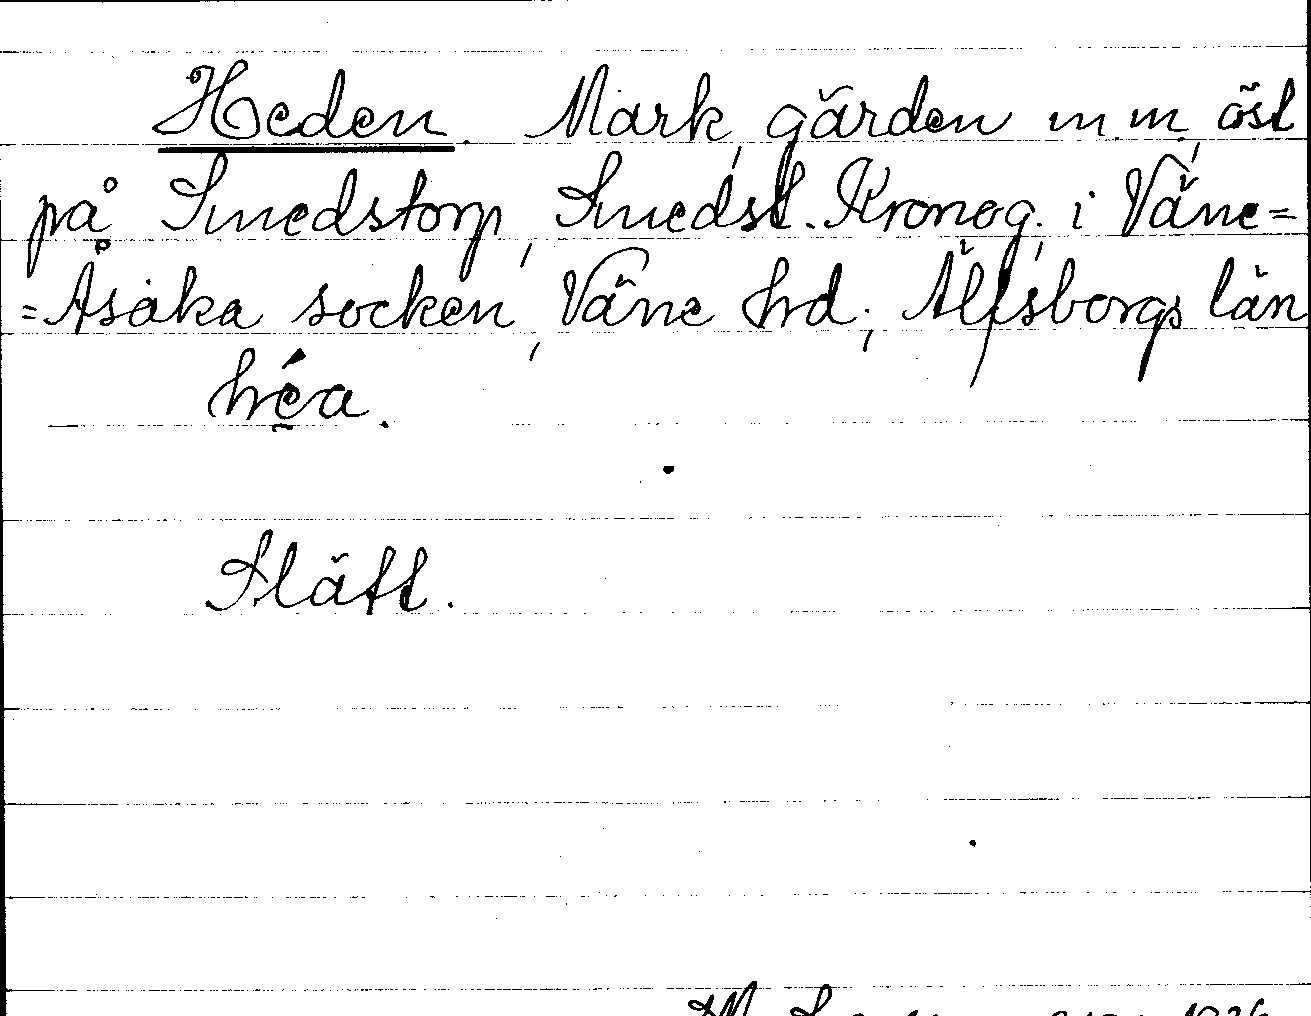 Heden. Mark, gärden m.m., öst
på Smedstorp, Smedst. Kronog. i Väne=
=Åsaka socken, Väne hd; Älfsborgs län
héa.
Slätt.